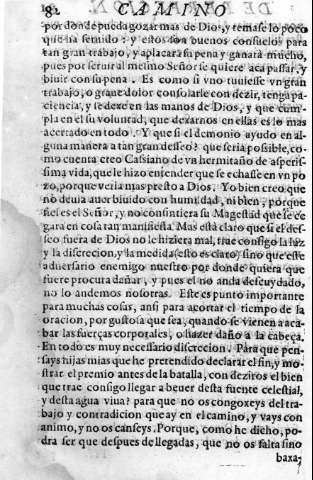 182 CAMINO
por donde pueda gozar mas de Dios, y temase lo poco
que ha seruido: y estos son buenos consuelos para
tan gran trabajo, y aplacarà su pena y ganarà mucho,
pues por seruir al mesmo Señor se quiere acà passar, y
biuir con su pena. Es como si vno tuuiesse vn gran
trabajo, o graue dolor consolarle con dezir, tenga pa-
ciencia, y se dexe en las manos de Dios, y que cum-
pla en el su voluntad, que dexarnos en ellas es lo mas
acertado en todo. Y que si el demonio ayudo en al-
guna manera a tan gran desseo? que seria possible, co-
mo cuenta creo Cassiano de vn hermitaño de asperis-
sima vida, que le hizo entender que se echasse en vn po
zo, porque veria mas presto a Dios. Yo bien creo que
no deuia auer biuido con humildad, ni bien, porque
fiel es el Señor, y no consintiera su Magestad que se ce
gara en cosa tan manifiesta. Mas està claro que si el des-
seo fuera de Dios no le hiziera mal, trae consigo la luz
y la discrecion, y la medida (esto es claro) sino que este
aduersario enemigo nuestro por donde quiera que
fuere procura dañar, y pues el no anda descuydado,
no lo andemos nosotras. Este es punto importante
para muchas cosas, ansi para acortar el tiempo de la
oracion, por gustosa que sea, quando se vienen a aca-
bar las fuerças corporales, o hazer daño a la cabeça.
En todo es muy necessario discrecion. Para que pen-
says hijas mias que he pretendido declarar el fin, y mo-
strar el premio antes de la batalla, con deziros el bien
que trae consigo llegar a beuer desta fuente celestial,
y desta agua viua? para que no os congoxeys del tra-
bajo y contradicion que ay en el camino, y vays con
animo, y no os canseys. Porque, como he dicho, po-
dra ser que despues de llegadas, que no os falta sino
baxa-